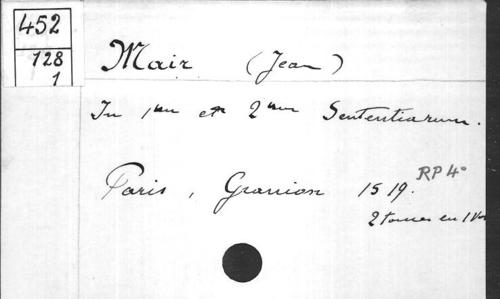 452
128
1
Mair (Jean)
In 1um et 2um Sententiarum.
Paris, Granion 1519.
RP 4°
2 tomes en 1 Vol